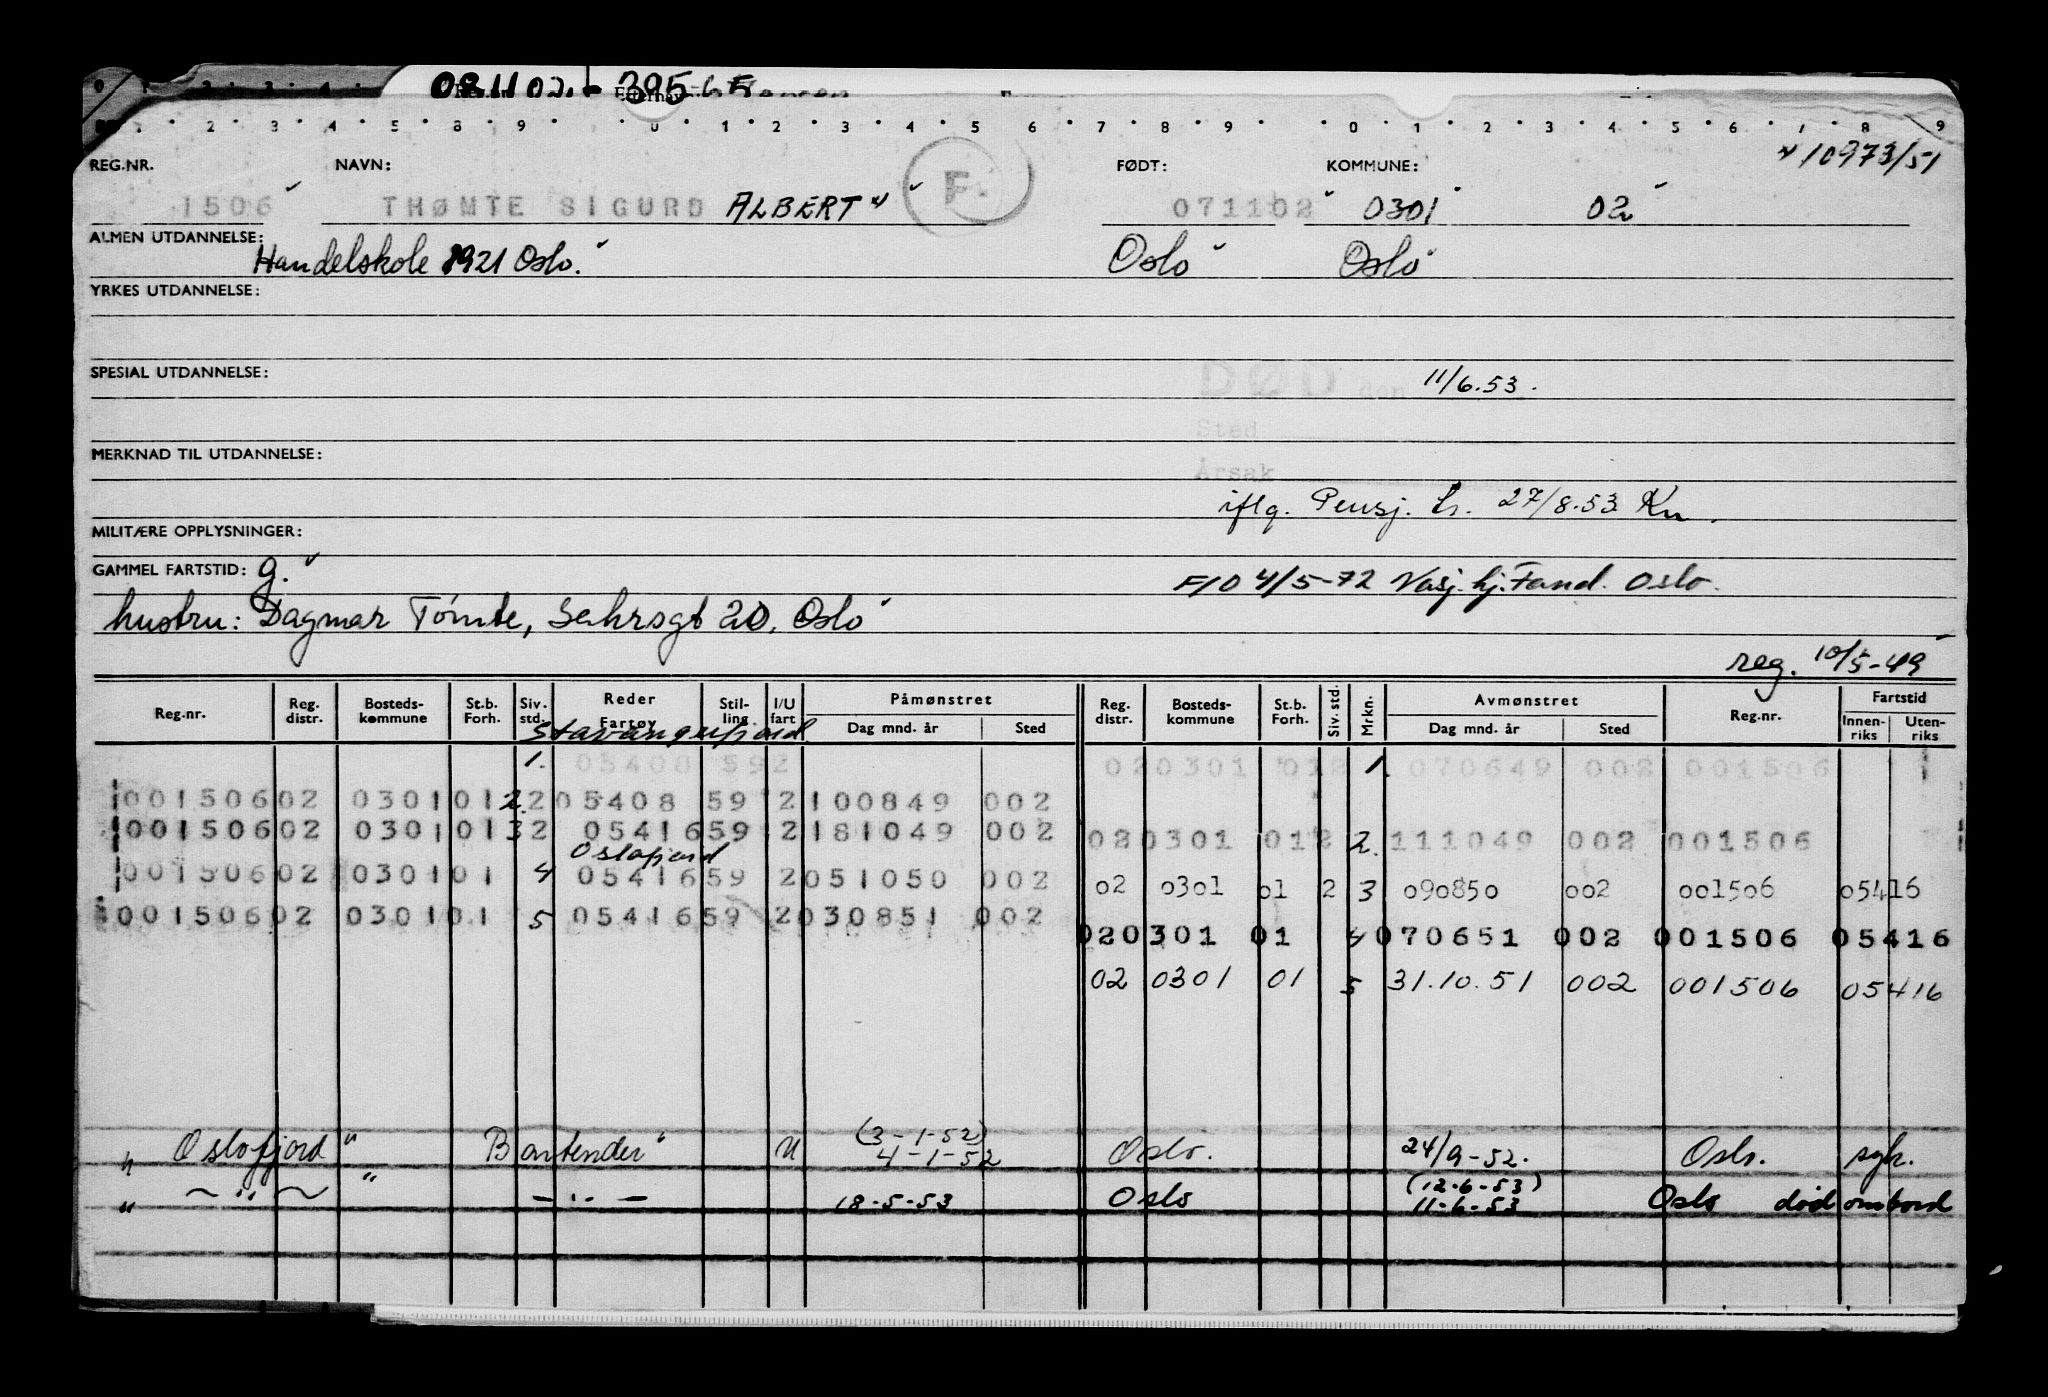 081102 395
0 1 2 3 4 5 8 9 0 1 2 3 4 5 6 7 8 9 0 1 2 3 4 5 6 7 8 9
REG.NR. NAVN: FØDT: KOMMUNE: 10973/51
1506 THØMTE SIGURD ALBERT F. 071102 0301 02
ALMEN UTDANNELSE: Handelskole 1921 Oslo. Oslo Oslo
YRKES UTDANNELSE:
SPESIAL UTDANNELSE: DØD den 11/6.53.
Sted
MERKNAD TIL UTDANNELSE:
Årsak
iflg. Pensj. tr. 27/8.53 Kn.
MILITÆRE OPPLYSNINGER:
GAMMEL FARTSTID: g. F/O 4/5-72 Vasj. hj. Fand. Oslo.
hustru: Dagmar Tömte, Sehrsgt 20. Oslo
reg. 10/5-49
Reg.nr. Reg. distr. Bosteds-kommune St.b. Forh. Siv. std. Reder Fartøy Stil-ling. I/U fart Påmønstret Dag mnd. år Sted Reg. distr. Bosteds-kommune St.b. Forh. Siv. std. Mrkn. Avmønstret Dag mnd. år Sted Reg.nr. Fartstid Innen-riks Uten-riks
Stavangerfjord
1. 05408 592 020301 012 1. 070649 002 001506
00150602 030101 2. 2 05408 59 2 100849 002
00150602 030101 3 2 05416 59 2 181049 002 020301 012 2. 111049 002 001506
Oslofjord
00150602 030101 4 05416 59 2 051050 002 02 0301 01 2 3 090850 002 001506 05416
00150602 030101 5 05416 59 2 030851 002 020301 01 4 070651 002 001506 05416
02 0301 01 5 31.10.51 002 001506 05416
" Oslofjord " Bartender " U (3-1-52) 4-1-52 Oslo. 24/9-52. Oslo. syk.
" ~ " ~ " - " - 18-5-53 Oslo (12-6-53) 11-6-53 Oslo død ombord